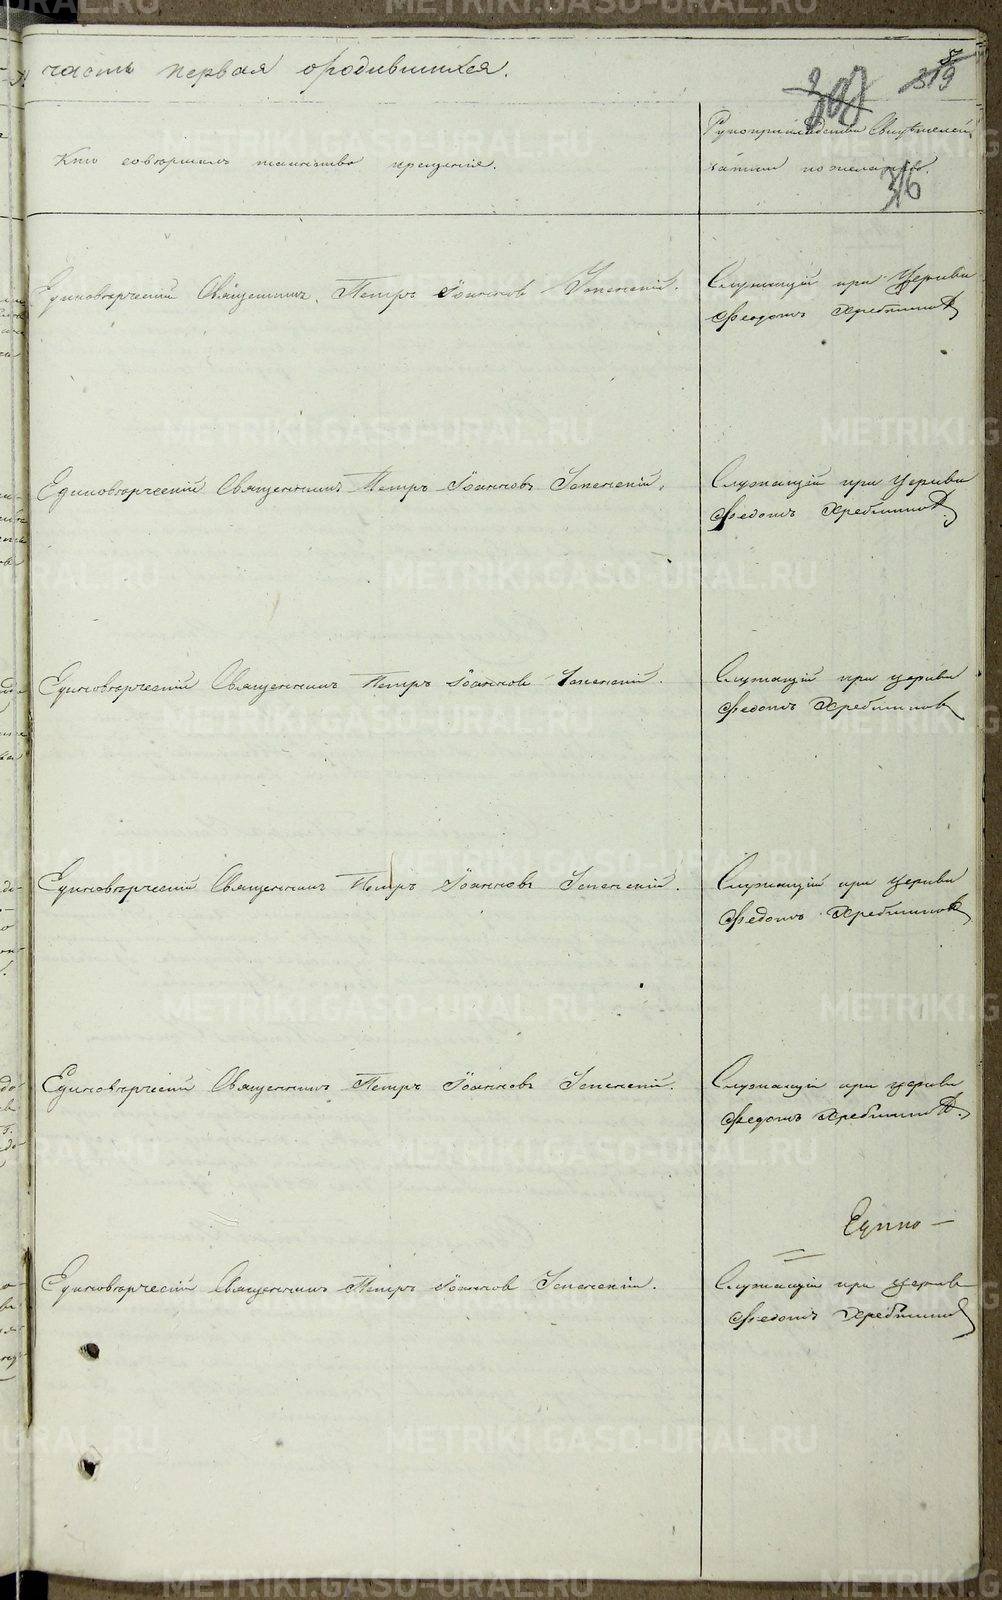 часть первая ородившихся.
319
316
Кто совершилъ таинство крещенія.
Рукоприкладство Свидѣтелей
записи по желанію.
Единоверческій Священникъ Петръ Іоанновъ
Служащій при Церкви
Федотъ Хребтиковъ
Единоверческій Священникъ Петръ Іоанновъ
Служащій при Церкви
Федотъ Хребтиковъ
Единоверческій Священникъ Петръ Іоанновъ
Служащій при церкви
Федотъ Хребтиковъ
Единоверческій Священникъ Петръ Іоанновъ
Служащій при церкви
Федотъ Хребтиковъ
Единоверческій Священникъ Петръ Іоанновъ
Служащій при церкви
Федотъ Хребтиковъ.
Едино-
Единоверческій Священникъ Петръ Іоанновъ
Служащій при церкви
Федотъ Хребтиковъ
METRIKI.GASO-URAL.RU